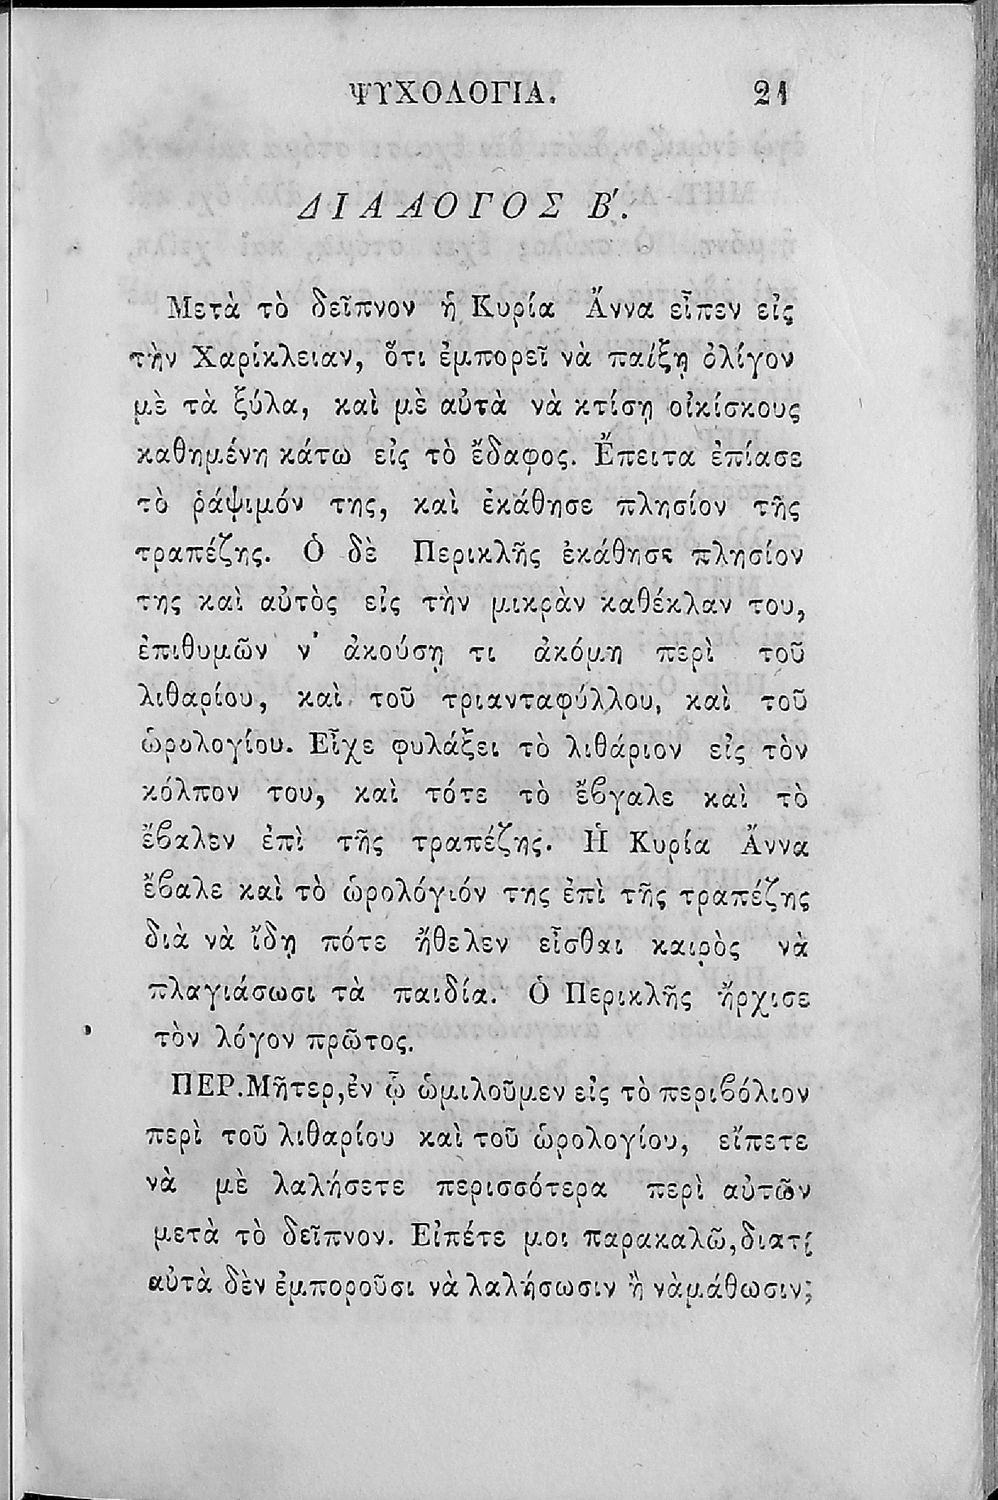 ΨΥΧΟΛΟΓΙΑ. 21
ΔΙΑΛΟΓΟΣ Β΄.
Μετὰ τὸ δεῖπνον ἡ Κυρία Ἄννα εἶπεν εἰς
τὴν Χαρίκλειαν, ὅτι ἐμπορεῖ νὰ παίξῃ ὀλίγον
μὲ τὰ ξύλα, καὶ μὲ αὐτὰ νὰ κτίσῃ οἰκίσκους
καθημένη κάτω εἰς τὸ ἔδαφος. Ἔπειτα ἐπίασε
τὸ ῥάψιμόν της, καὶ ἐκάθησε πλησίον τῆς
τραπέζης. Ὁ δὲ Περικλῆς ἐκάθησε πλησίον
της καὶ αὐτὸς εἰς τὴν μικρὰν καθέκλαν του,
ἐπιθυμῶν ν' ἀκούσῃ τι ἀκόμη περὶ τοῦ
λιθαρίου, καὶ τοῦ τριανταφύλλου, καὶ τοῦ
ὡρολογίου. Εἶχε φυλάξει τὸ λιθάριον εἰς τὸν
κόλπον του, καὶ τότε τὸ ἔϐγαλε καὶ τὸ
ἔϐαλεν ἐπὶ τῆς τραπέζης. Ἡ Κυρία Ἄννα
ἔϐαλε καὶ τὸ ὡρολόγιόν της ἐπὶ τῆς τραπέζης
διὰ νὰ ἴδῃ πότε ἤθελεν εἶσθαι καιρὸς νὰ
πλαγιάσωσι τὰ παιδία. Ὁ Περικλῆς ἤρχισε
τὸν λόγον πρῶτος.
ΠΕΡ. Μῆτερ, ἐν ᾧ ὡμιλοῦμεν εἰς τὸ περιϐόλιον
περὶ τοῦ λιθαρίου καὶ τοῦ ὡρολογίου, εἴπετε
νὰ μὲ λαλήσετε περισσότερα περὶ αὐτῶν
μετὰ τὸ δεῖπνον. Εἰπέτε μοι παρακαλῶ, διατί
αὐτὰ δὲν ἐμποροῦσι νὰ λαλήσωσιν ἢ νὰ μάθωσιν;